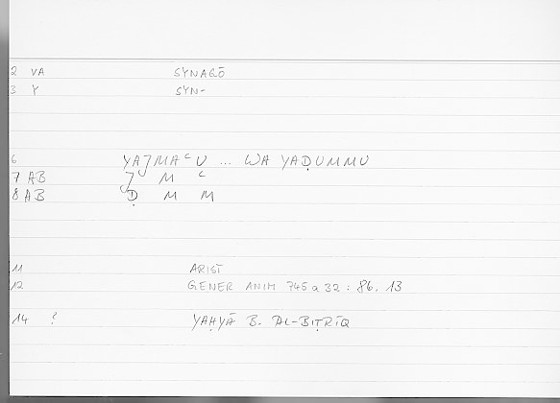 2 VA SYNAGŌ
3 Y SYN-
6 YAǦMAᶜU ... WA YAḌUMMU
7 AB Ǧ M ᶜ
8 AB Ḍ M M
11 ARIST
12 GENER ANIM 745 a 32 : 86. 13
14 ? YAḤYĀ B. AL-BIṬRĪQ